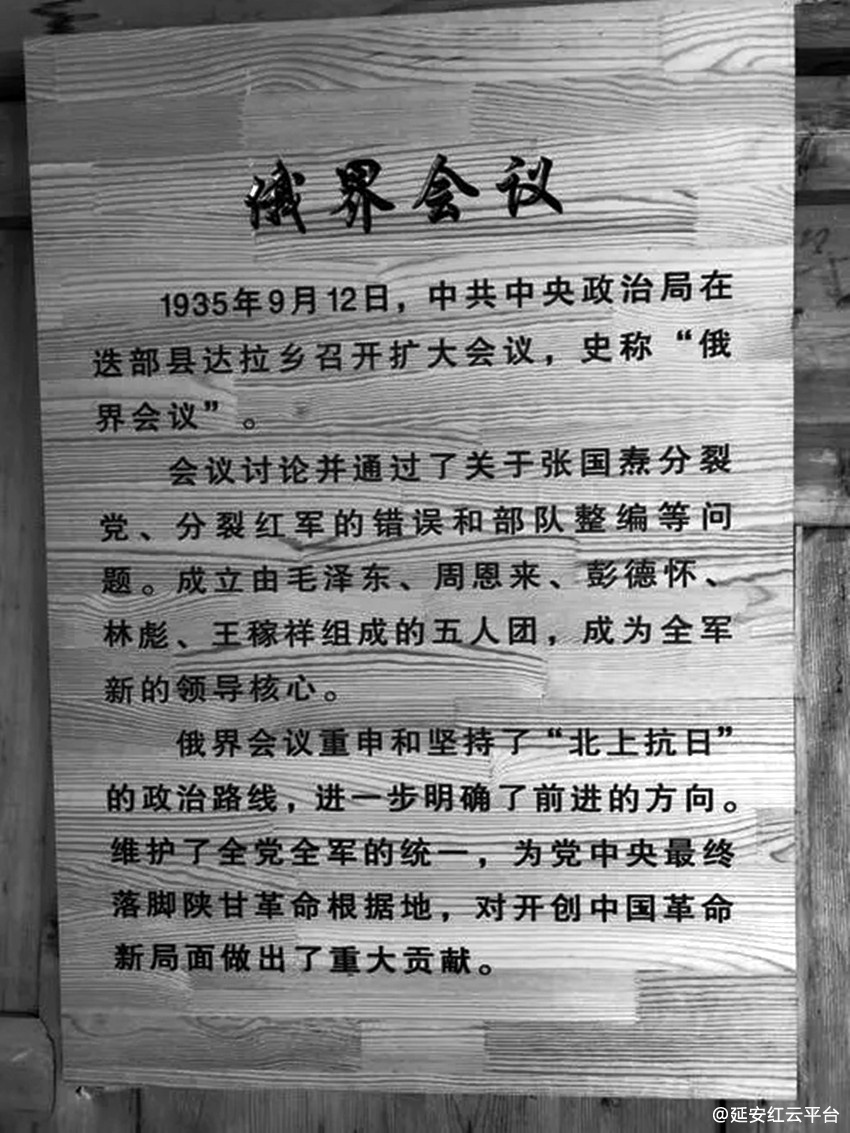 俄界会议
1935年9月12日，中共中央政治局在
迭部县达拉乡召开扩大会议，史称“俄
界会议”。
会议讨论并通过了关于张国焘分裂
党、分裂红军的错误和部队整编等问
题。成立由毛泽东、周恩来、彭德怀、
林彪、王稼祥组成的五人团，成为全军
新的领导核心。
俄界会议重申和坚持了“北上抗日”
的政治路线，进一步明确了前进的方向。
维护了全党全军的统一，为党中央最终
落脚陕甘革命根据地，对开创中国革命
新局面做出了重大贡献。
@延安红云平台